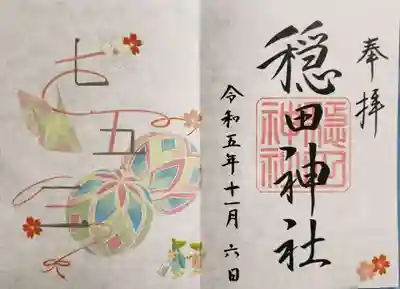 奉拝
穏田神社
穏田
神社
令和五年十一月六日
七五三